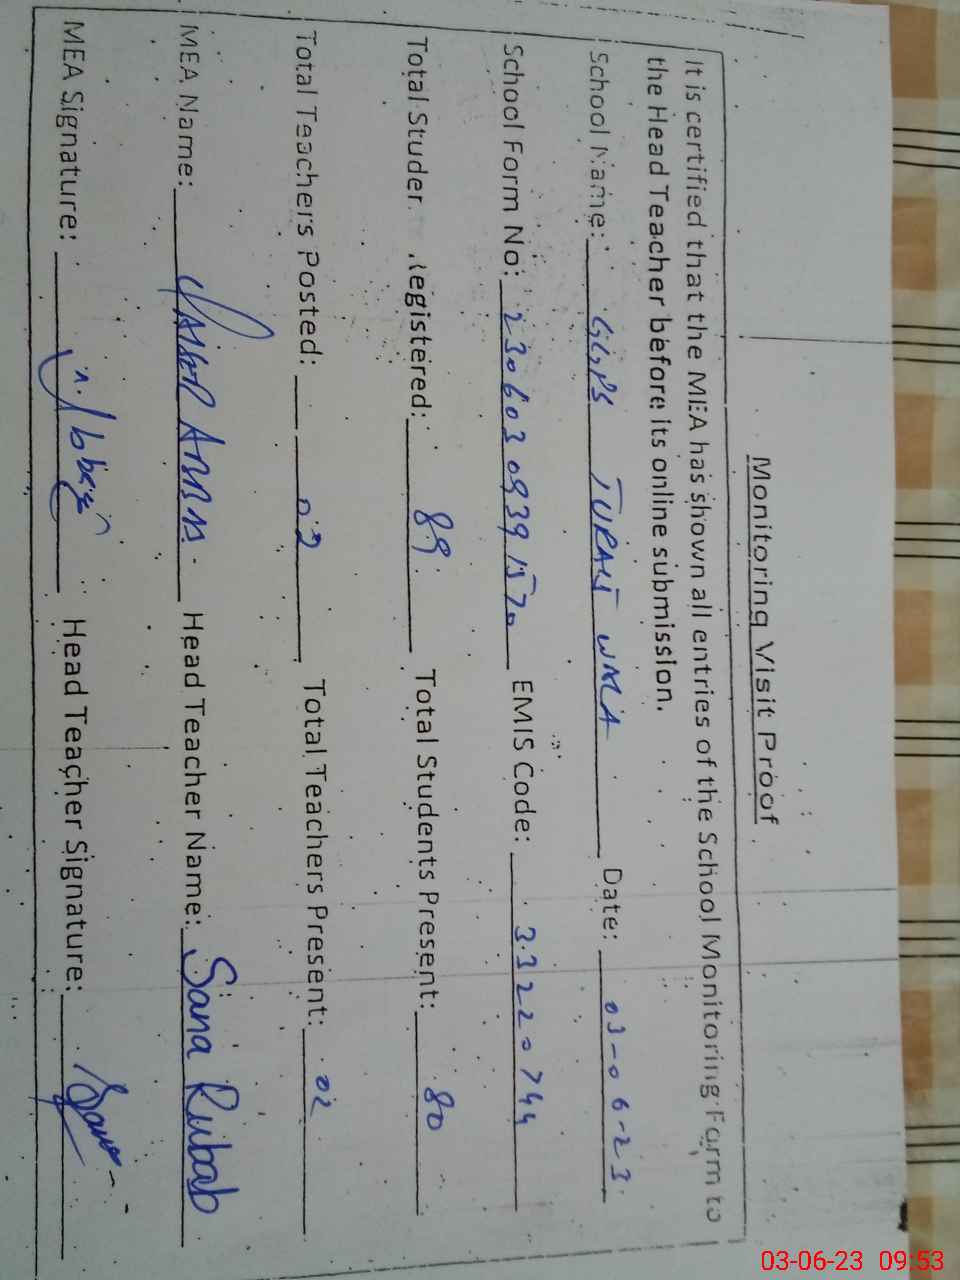 Monitoring Visit Proof
It is certified that the MEA has shown all entries of the School Monitoring Form to
the Head Teacher before its online submission.
School Name: GGPS TURALI WALA Date: 03-06-23
School Form No: 23060309391570 EMIS Code: 33220744
Total Student Registered: 89 Total Students Present: 80
Total Teachers Posted: 02 Total Teachers Present: 02
MEA Name: Head Teacher Name: Sana Rubab
MEA Signature: Head Teacher Signature: Sana
03-06-23 09:53